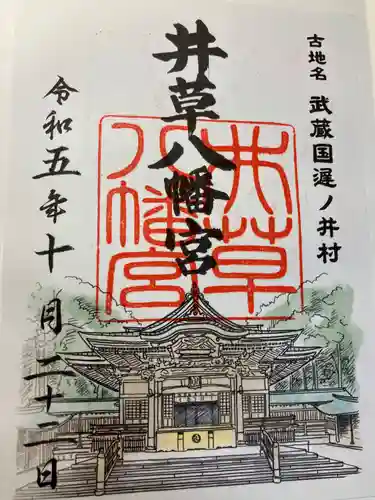 古地名 武蔵国遅ノ井村
井草八幡宮
井草
八幡宮
令和五年十一月二十二日